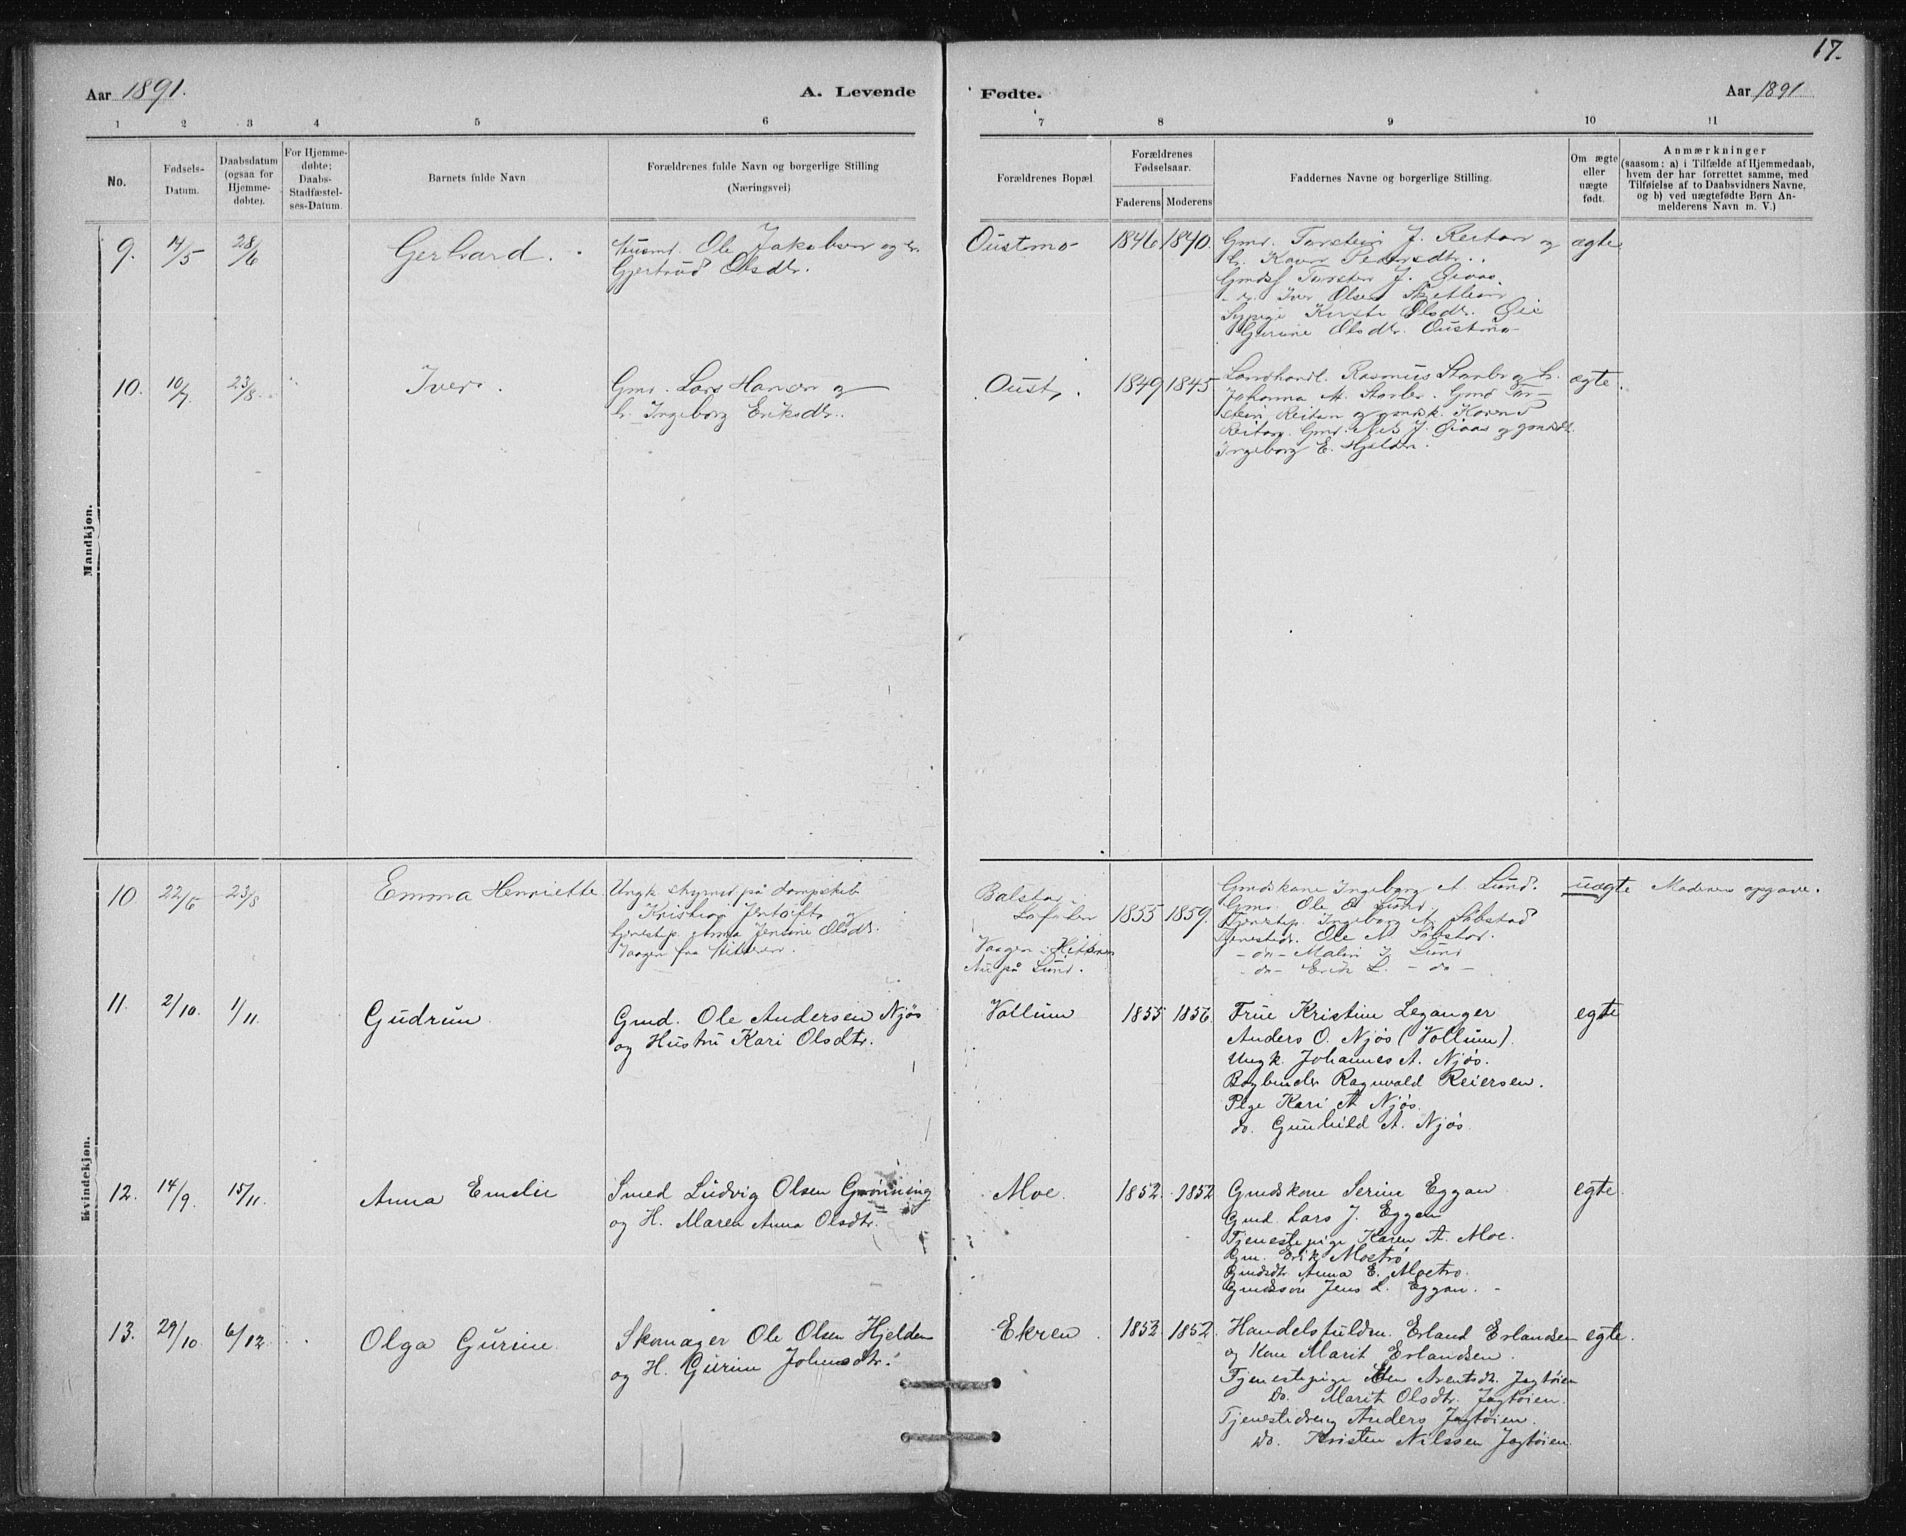 17.
Aar 1891.
A. Levende
Fødte.
Aar 1891
1 2 3 4 5 6 7 8 9 10 11
No.
Fødsels-
Datum.
Daabsdatum
(ogsaa for
Hjemme-
døbte).
For Hjemme-
døbte;
Daabs-
Stadfæstel-
ses-Datum.
Barnets fulde Navn
Forældrenes fulde Navn og borgerlige Stilling
(Næringsvei)
Forældrenes Bopæl.
Forældrenes
Fødselsaar.
Faderens Moderens
Faddernes Navne og borgerlige Stilling.
Om ægte
eller
uægte
født.
Anmærkninger
(saasom: a) i Tilfælde af Hjemmedaab,
hvem der har forrettet samme, med
Tilføielse af to Daabsvidners Navne,
og b) ved uægtefødte Børn An-
melderens Navn m. V.)
Mandkjøn.
9. 14/5 28/6 Gerhard.
Ole Jakobsen og
Gjertrud Olsdtr.
Oustmo 1846 1840.
Gmd. Torstein J. Reitan og
Pedersdtr.
Torsten J. Øiaas
Iver Olsen
Kirsti Olsdtr. Øie
Gurine Olsdtr. Oustmo
ægte
10. 10/7 23/8 Iver.
Gmd. Lars Hansen og
h. Ingeborg Eriksdtr.
Oust, 1849 1845
Landhandl. Rasmus Størler og h.
Johanna M. Størler. Gmd Tor-
stein Reitan og
Reitan. Gmd. Nils J. Øiaas og
Ingeborg E. Hjelden.
ægte.
Kvindekjøn.
10 22/5 23/8 Emma Henriette.
Ungk. styrmd på dampskib
Kristian Jentoft og
tjenestep. Anna Jensine Olsdtr.
Vaagen fra Hitteren.
Balstad
Lofoten
Vaagen i Hitteren
Nu på Lund.
1855 1859.
Gmdskone Ingeborg A. Lund.
Gmd. Ole E Lund.
Tjenestep. Ingeborg A. Løbstad
Tjenestedr. Ole A Løbstad.
- do - Malin J. Lund
- do - Erik L. - do -
uægte Moderens opgave.
11. 2/10. 1/11. Gudrun
Gmd. Ole Andersen Njøs
og Hustru Kari Olsdtr.
Vollum 1855 1856.
Frue Kristine Leganger
Anders O. Njøs (Vollum).
Ungk. Johannes A. Njøs.
Bogbinder Ragnvald Reiersen.
Pige Kari A Njøs.
do. Gunhild A. Njøs.
egte
12. 14/9. 15/11. Anna Emelie
Smed Ludvig Olsen Grønning
og H. Maren Anna Olsdtr.
Moe. 1852. 1852
Gmdskone Serine Eggan
Gmd. Lars J. Eggen
Tjenestepige Karen A. Moe.
Gm. Erik Moetrø
Gmdsdtr Anna E. Moetrø.
Gmdssøn Jens L. Eggan.
egte.
13. 29/10 6/12. Olga Gurine
Skomager Ole Olsen Hjelden
og H. Gurine Johnsdtr.
Ekren. 1853 1852.
Handelsfuldm. Erland Erlandsen
og Kone Marit Erlandsen.
Tjenestepige Arentsdt. Jagtøien
Do. Marit Olsdtr. Jagtøien.
Tjenestedreng Anders Jagtøien.
Do. Kristen Nilssen Jagtøien.
egte.